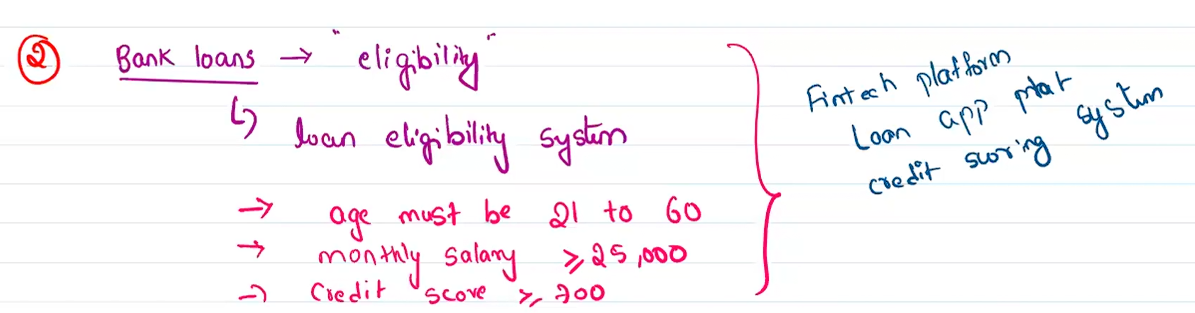 2 Bank loans → "eligibility"
↳ loan eligibility system
→ age must be 21 to 60
→ monthly salary ≥ 25,000
→ Credit score ≥ 700
Fintech platform
Loan app plat
credit scoring system